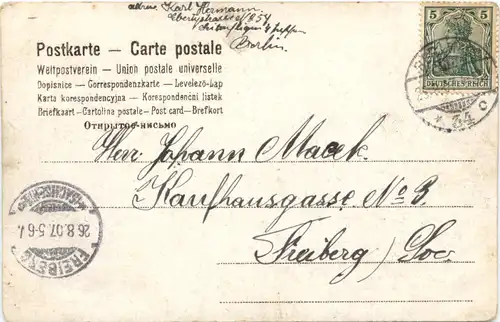 Adresse Karl Hermann.
Berlin.
Postkarte — Carte postale
Weltpostverein — Union postale universelle
Dopisnice - Correspondenzkarte - Levelező-Lap
Karta korespondencyjna - Korespondenční listek
Briefkaart - Cartolina postale - Post card - Brefkort
Открытое письмо
5 5
DEUTSCHES REICH
* 34 c
Herr Johann Macek.
Kaufhausgasse No 3.
Freiberg / Sac.
FREIBERG
26.8.07. 5-6
(SACHSEN)